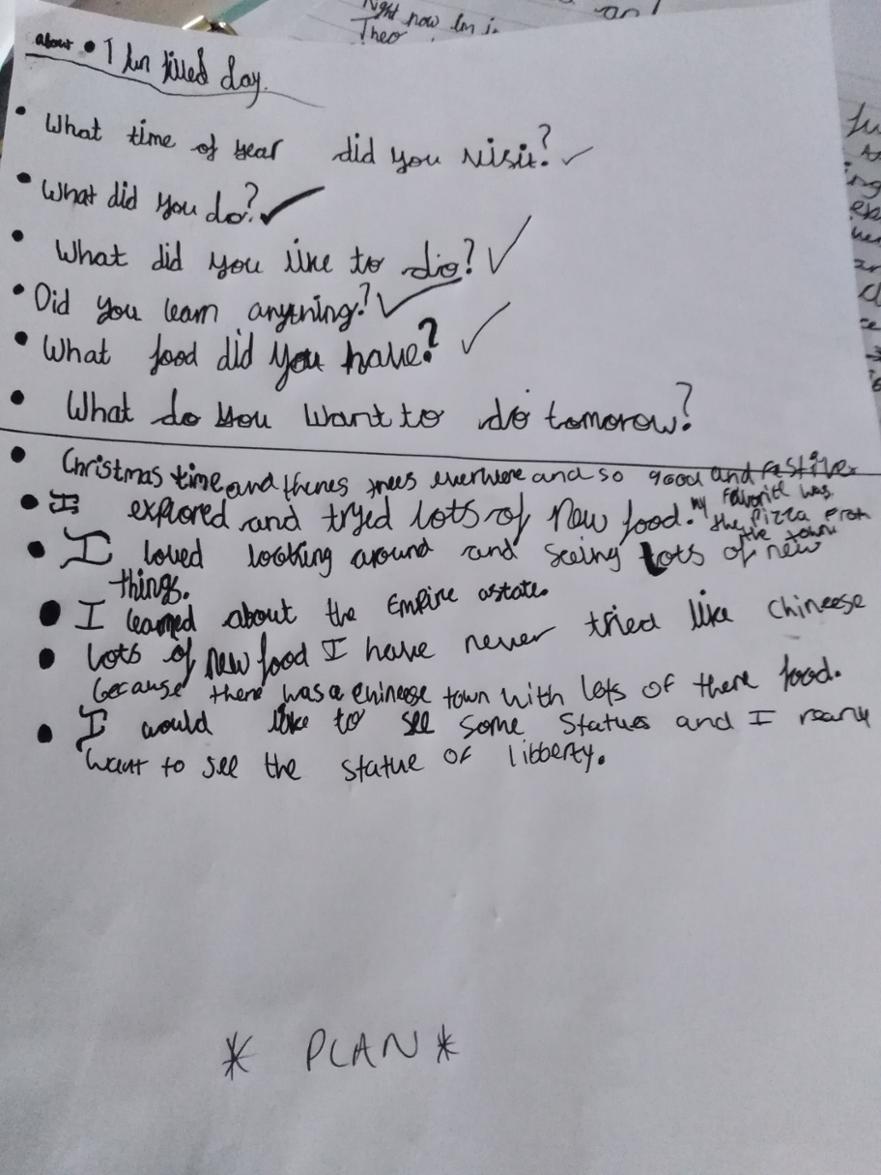 Right now Im i
Theo
an
about • 1 fun filled day.
• What time of year did you visit? ✓
• What did you do? ✓
• What did you like to do? ✓
• Did you learn anything? ✓
• What food did you have? ✓
• What do you want to do tomorow?
• Christmas time and theres trees everwere and so good and festive
• I explored and tryed lots of new food. my favorite was
the pizza from
the town
• I loved looking around and seeing lots of new
things.
• I learned about the Empire astate.
• lots of new food I have never tried like chineese
because there was a chineese town with lots of there food.
• I would like to see some statues and I really
want to see the statue of libberty.
* PLAN *